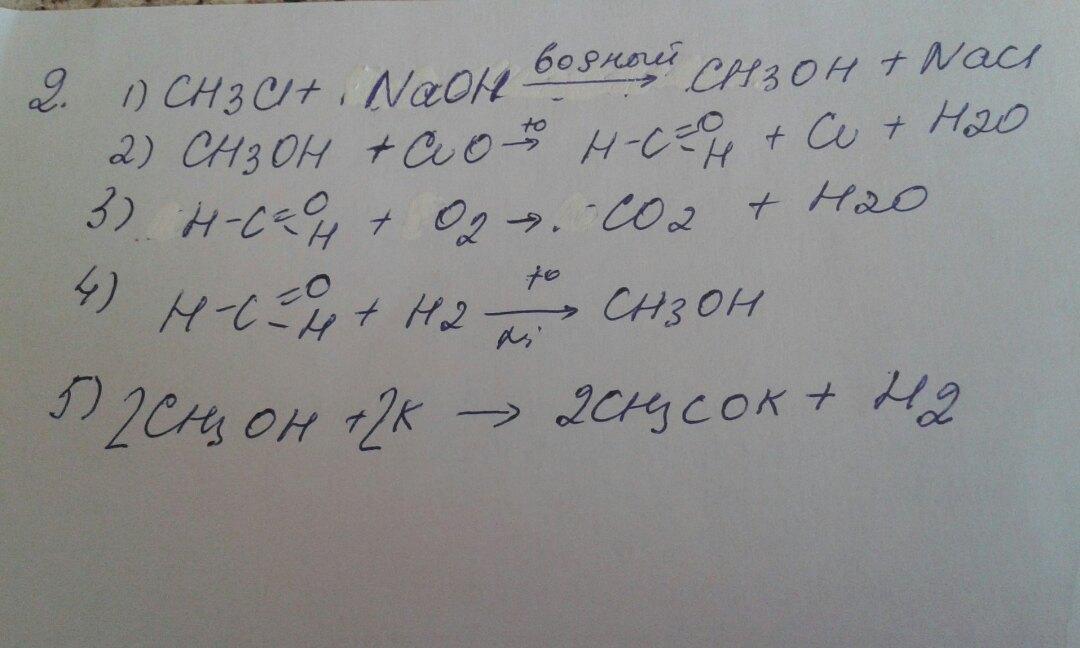 2. 1) CH3Cl + NaOH водный → CH3OH + NaCl
2) CH3OH + CuO t° → H-C=O-H + Cu + H2O
3) H-C=O-H + O2 → CO2 + H2O
4) H-C=O-H + H2 t° → Ni CH3OH
5) 2CH3OH + 2K → 2CH3COK + H2